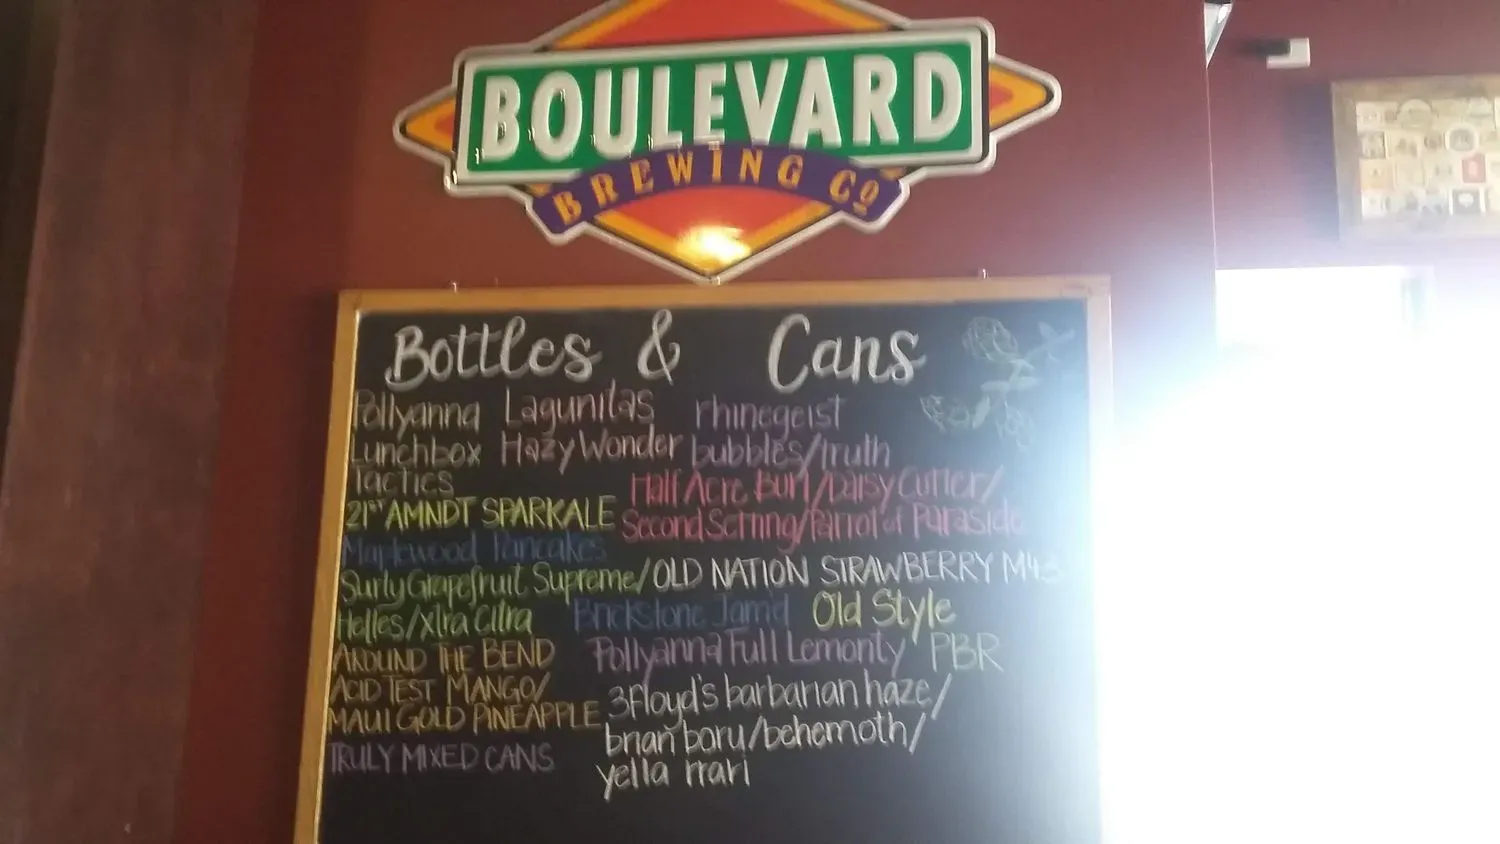 BOULEVARD
BREWING CO
Bottles & Cans
Pollyanna
Lunchbox
Tactics
Lagunitas
Hazy Wonder
rhinegeist
bubbles/truth
21ST AMNDT SPARKALE
Half Acre Bun/Daisy Cutter/
Second Setting/Parrot of Paraside
Maplewood Pancakes
Surly Grapefruit Supreme/
Helles/Xtra Citra
OLD NATION STRAWBERRY M43
Brickstone Jam'd
Old Style
AROUND THE BEND
ACID TEST MANGO/
MAUI GOLD PINEAPPLE
Pollyanna Full Lemonty
PBR
3Floyd's barbarian haze/
brian boru/behemoth/
yella rrari
TRULY MIXED CANS